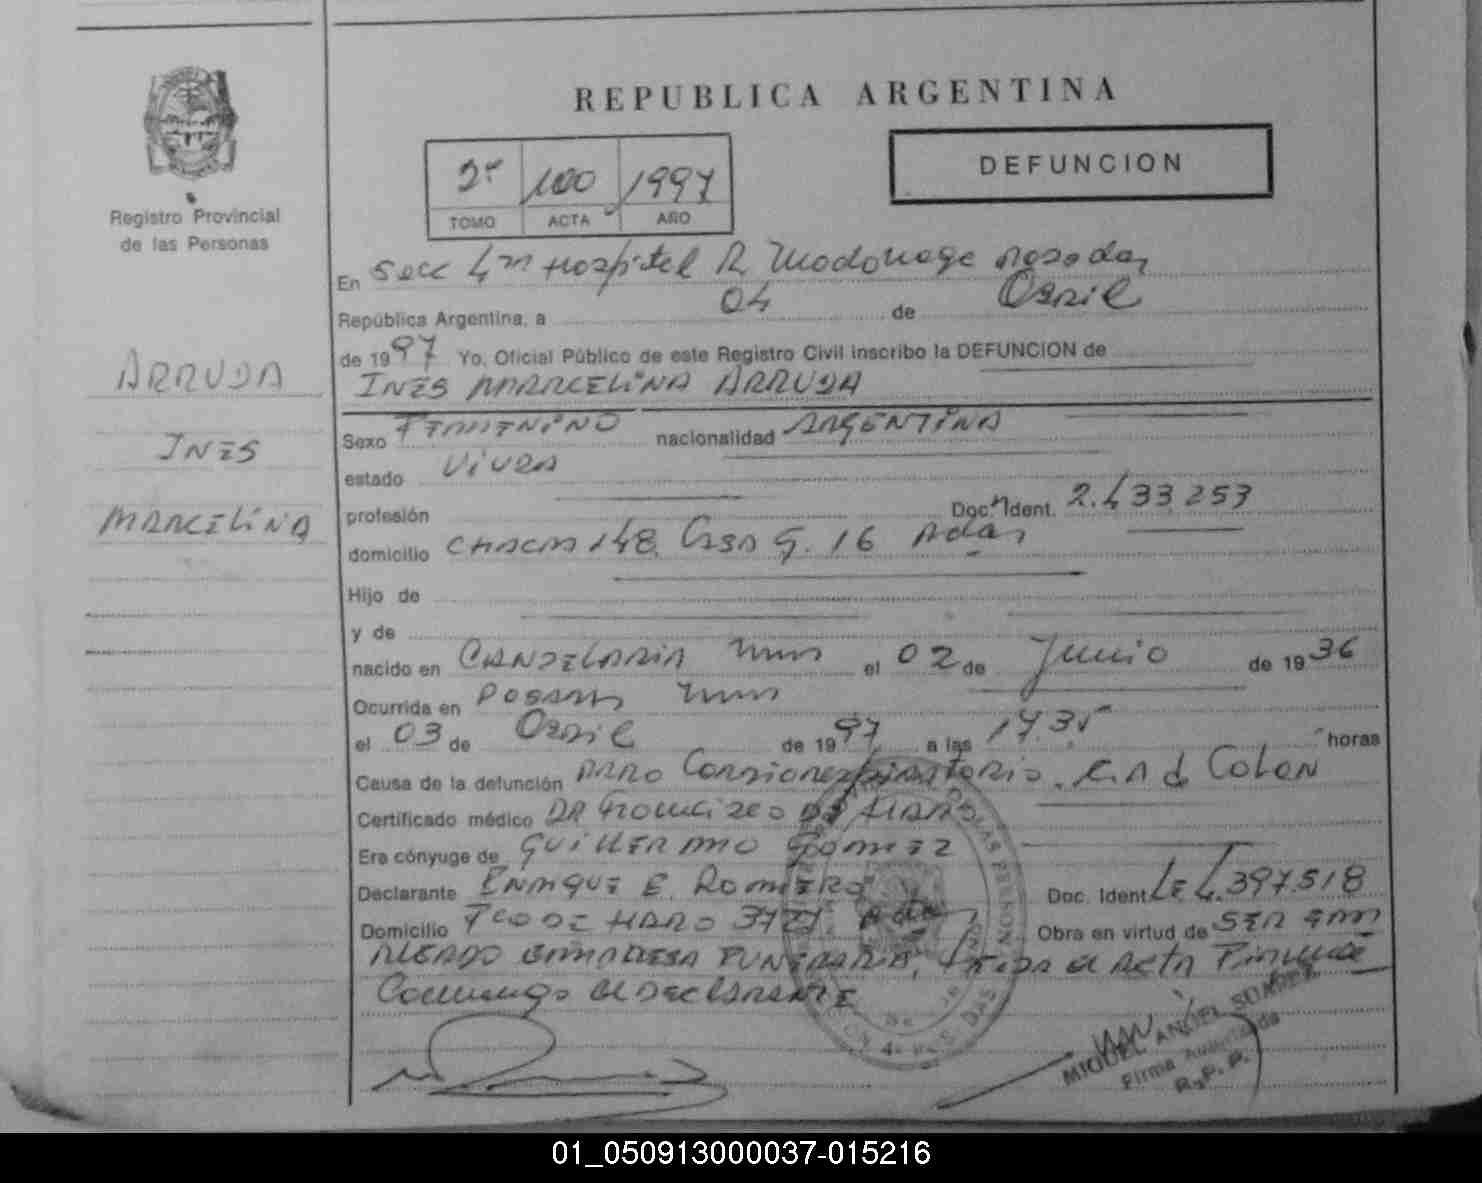 REPUBLICA ARGENTINA
DEFUNCION
2º 100 1997
TOMO ACTA AÑO
Registro Provincial
de las Personas
ARRUDA
INES
MARCELINA
En Secc 4ta Hospital R. Madariaga Posadas
República Argentina, a 04 de Abril
de 1997 Yo, Oficial Público de este Registro Civil inscribo la DEFUNCION de
INES MARCELINA ARRUDA
Sexo FEMENINO nacionalidad ARGENTINA
estado VIUDA
profesión Doc. Ident. 2.433.253
domicilio CHACRA 148 Casa 16
Hijo de
y de
nacido en CANDELARIA Mnes el 02 de Junio de 1936
Ocurrida en Posadas Mnes
el 03 de Abril de 1997 a las 17.35 horas
Causa de la defunción PARO Cardiorespiratorio. C.A de Colon
Certificado médico DR
Era cónyuge de GUILLERMO GOMEZ
Declarante ENRIQUE E. ROMERO Doc. Ident LE 4.397.518
Domicilio FCO DE HARO Obra en virtud de SER EM
PLEADO EMPRESA FUNERARIA, Leida el ACTA Firma
Conmigo el DECLARANTE
MIGUEL ANGEL
Firma Autorizada
R.P.P.
01_050913000037-015216